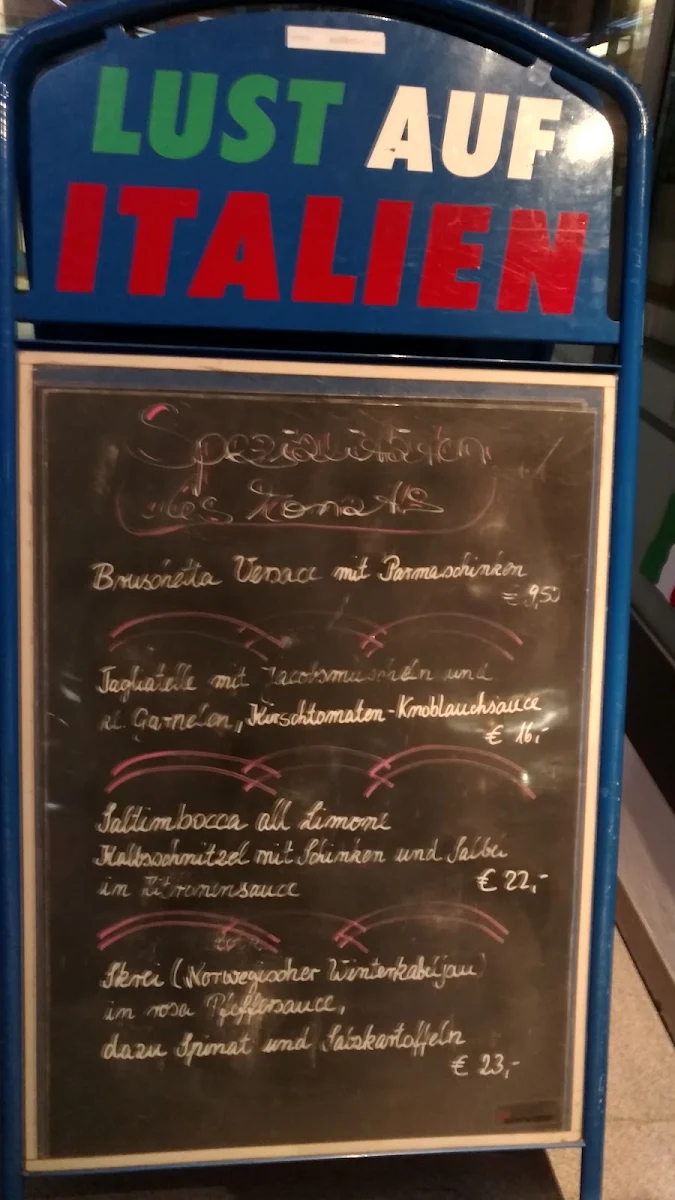 LUST AUF
ITALIEN
Spezialitäten
des Monats
Bruschetta Versace mit Parmaschinken
€ 9,50
Tagliatelle mit Jacobsmuscheln und
kl. Garnelen, Kirschtomaten-Knoblauchsauce
€ 16,-
Saltimbocca all Limone
Kalbsschnitzel mit Schinken und Salbei
in Zitronensauce
€ 22,-
Skrei (Norwegischer Winterkabeljau)
in rosa Pfeffersauce,
dazu Spinat und Salzkartoffeln
€ 23,-